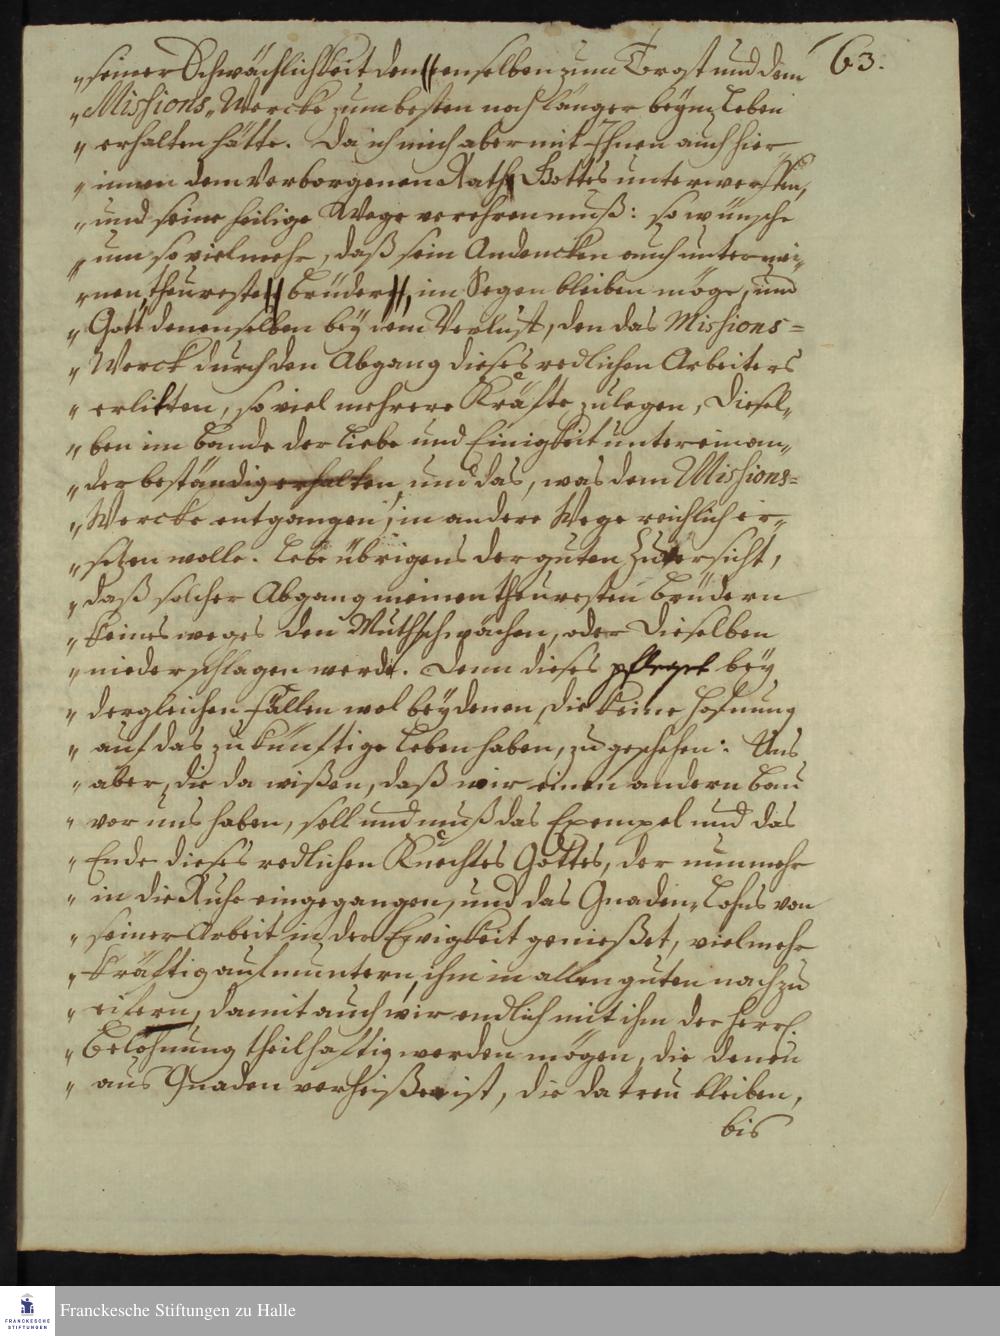 63.
„seiner Schwächlichkeit denenselben zum Trost und dem
„Missions-Wercke zum besten noch länger beym Leben
„erhalten hätte. Da ich mich aber mit Ihnen auch hier
„innen dem verborgenen Rath Gottes unterwerffen,
„und seine heilige Wege verehren muß: so wünsche
„um so viel mehr, daß sein Andencken auch unter mei-
„nen theuresten Brüdern, im Segen bleiben möge, und
„Gott denenselben bey dem Verlust, den das Missions=
„Werck durch den Abgang dieses redlichen Arbeiters
„erlitten, so viel mehrere Kräfte zulegen, Diesel-
„ben im Bande der Liebe und Einigkeit unter einan-
„der beständig erhalten und das, was dem Missions=
„Wercke entgangen, in andere Wege reichlich er-
„setzen wolle. Lebe übrigens der guten Zuversicht,
„daß solcher Abgang meinen theuresten Brüdern
„keines weges den Muth schwächen, oder Dieselben
„niederschlagen werde. Denn dieses pfleget bey
„dergleichen Fällen wol bey denen, die keine Hofnung
„auf das zukünftige Leben haben, zu geschehen: Uns
„aber, die da wißen, daß wir einen andern Bau
„vor uns haben, soll und muß das Exempel und das
„Ende dieses redlichen Knechtes Gottes, der nunmehr
„in die Ruhe eingegangen, und das Gnaden-Lohns von
„seiner Arbeit in der Ewigkeit genießet, vielmehr
„kräftig aufmuntern, ihm in allen guten nachzu
„eifern, damit auch wir endlich mit ihm der herrl.
„Belohnung theilhaftig werden mögen, die denen
„aus Gnaden verheißen ist, die da treu bleiben,
bis
Franckesche Stiftungen zu Halle
FRANCKESCHE
STIFTUNGEN